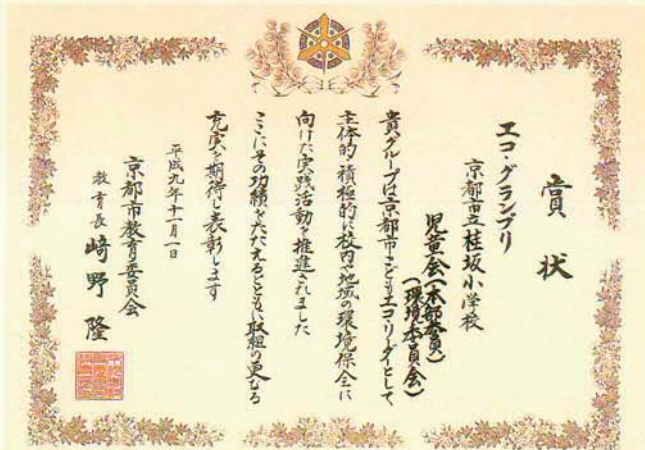 賞状
エコ・グランプリ
京都市立桂坂小学校
児童会(本部委員)
(環境委員会)
貴グループは京都市こどもエコ・リーダーとして
主体的・積極的に校内や地域の環境保全に
向けた実践活動を推進されました
ここにその功績をたたえるとともに取組の更なる
充実を期待し表彰します
平成九年十一月一日
京都市教育委員会
教育長 崎野 隆